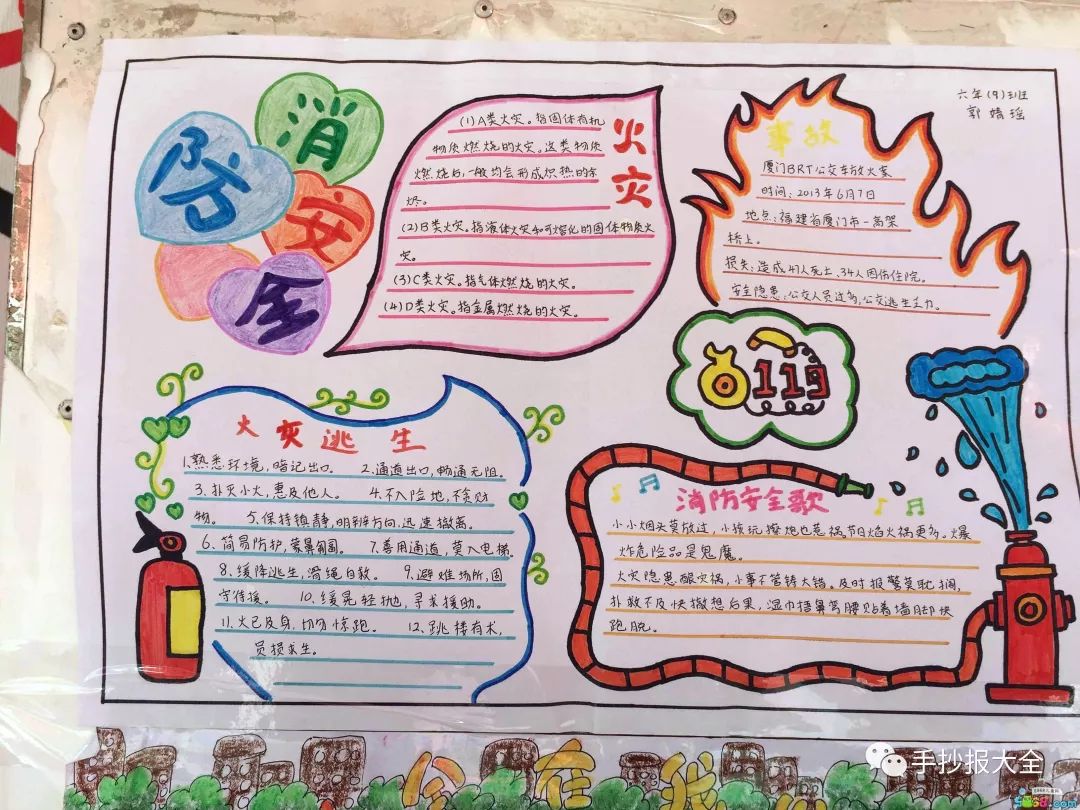 消
防
安
全
火灾
(1)A类火灾。指固体有机
物质燃烧的火灾。这类物质
燃烧后,一般均会形成炽热的余
烬。
(2)B类火灾。指液体火灾和可熔化的固体物质火
灾。
(3)C类火灾。指气体燃烧的火灾。
(4)D类火灾。指金属燃烧的火灾。
事故
厦门BRT公交车放火案
时间:2013年6月7日
地点:福建省厦门市一高架
桥上。
损失:造成47人死亡、34人因伤住院。
安全隐患:公交人员过多,公交逃生乏力。
六年(9)班
郭婧瑶
119
火灾逃生
1.熟悉环境,暗记出口。 2.通道出口,畅通无阻。
3.扑灭小火,惠及他人。 4.不入险地,不贪财
物。 5.保持镇静,明辨方向,迅速撤离。
6.简易防护,蒙鼻匍匐。 7.善用通道,莫入电梯。
8.缓降逃生,滑绳自救。 9.避难场所,固
守待援。 10.缓晃轻抛,寻求援助。
11.火已及身,切勿惊跑。 12.跳楼有术,
员损求生。
消防安全歌
小小烟头莫放过,小孩玩擦炮也惹祸。节日焰火祸更多。爆
炸危险品是鬼魔。
火灾隐患酿灾祸,小事不管铸大错。及时报警莫耽搁,
扑救不及快撤想后果,湿巾捂鼻弯腰贴着墙脚快
跑脱。
手抄报大全